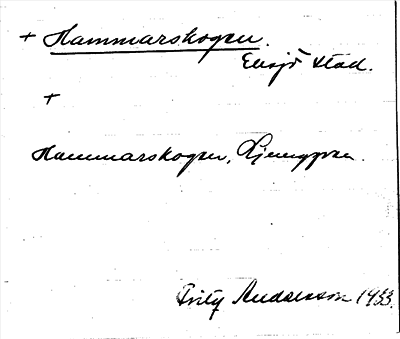 + Hammarskogen.
Eksjö stad.
+
Hammarskogen, Ljunggren.
Fritz Andersson 1933.